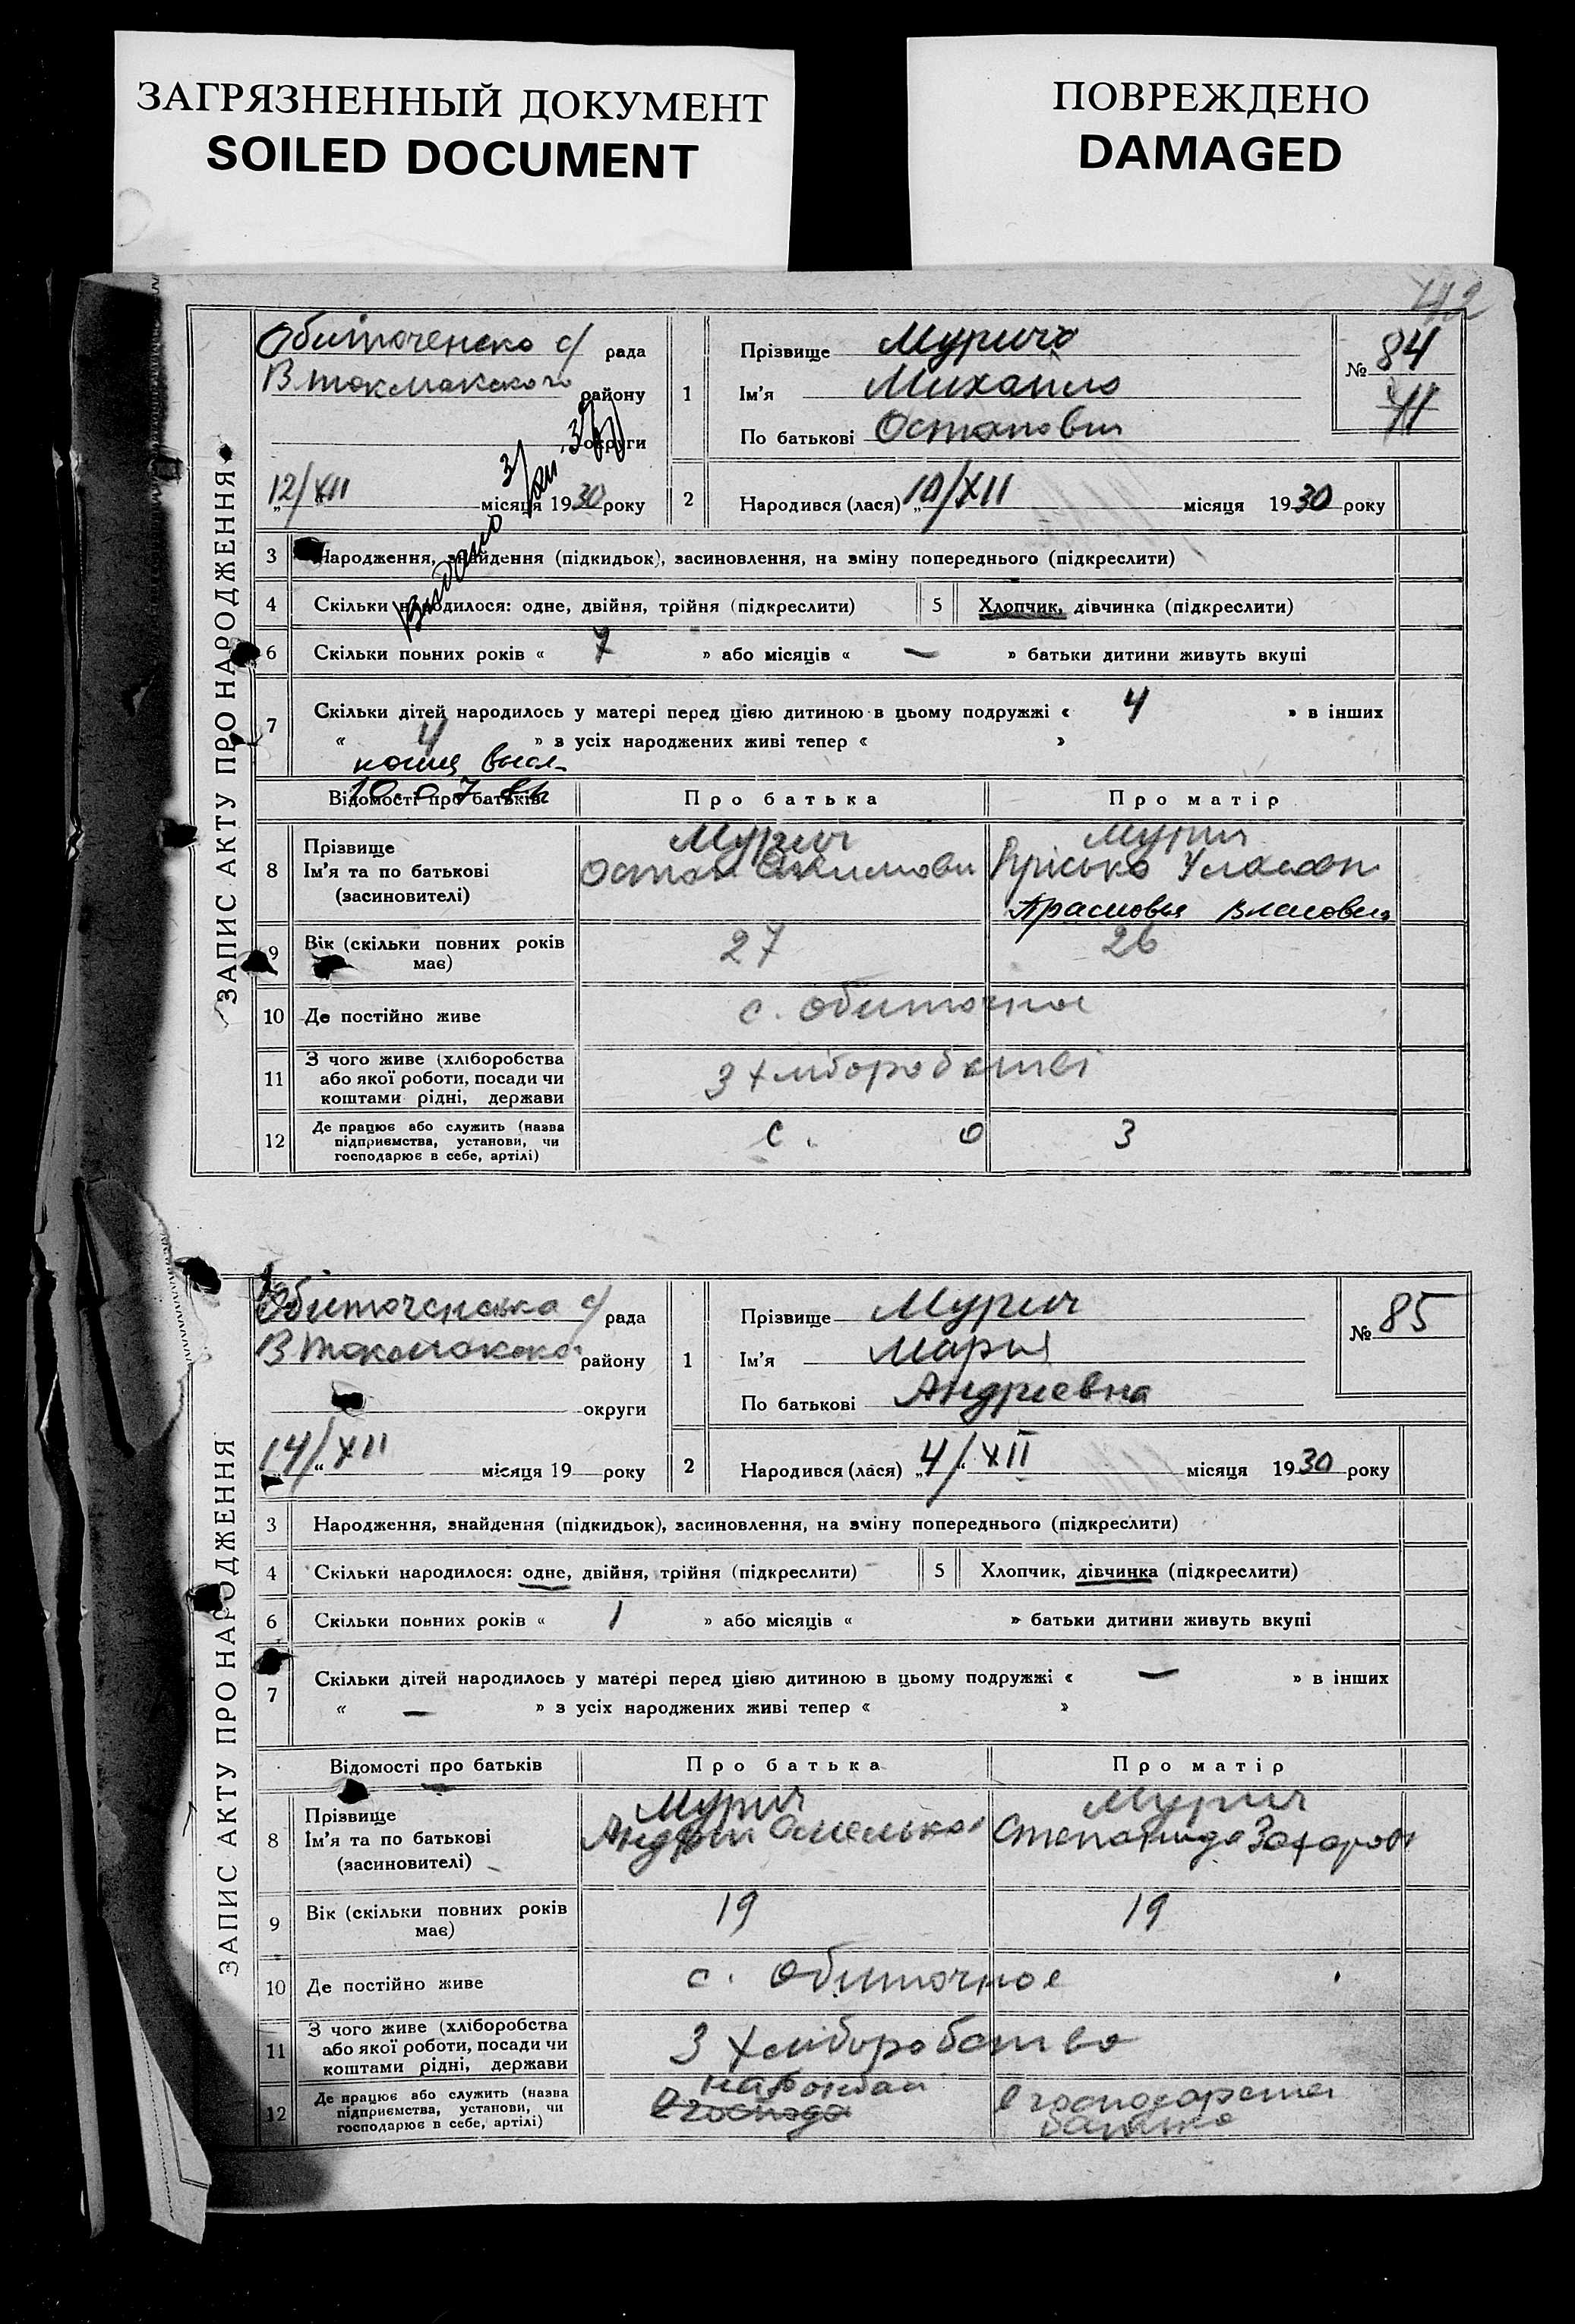 ЗАГРЯЗНЕННЫЙ ДОКУМЕНТ
SOILED DOCUMENT
ПОВРЕЖДЕНО
DAMAGED
42
ЗАПИС АКТУ ПРО НАРОДЖЕННЯ
Обиточенсько с/ рада
В токмакского району
округи
12/XII місяця 1930 року
Видано
1
Прізвище Мурича
Ім'я Михайло
По батькові Остапович
№ 84
41
2 Народився (лася) „10/XII місяця 1930 року
3 Народження, знайдення (підкидьок), засиновлення, на зміну попереднього (підкреслити)
4 Скільки народилося: одне, двійня, трійня (підкреслити) 5 Хлопчик, дівчинка (підкреслити)
6 Скільки повних років « 7 » або місяців « — » батьки дитини живуть вкупі
7 Скільки дітей народилось у матері перед цією дитиною в цьому подружжі « 4 » в інших
« 4 » з усіх народжених живі тепер « »
копия высл
Відомості про батьків Про батька Про матір
8 Прізвище Мурич Мурич
Ім'я та по батькові Остап
(засновителі) Прасковья Власовна
9 Вік (скільки повних років має) 27 26
10 Де постійно живе с. Обиточное
11 З чого живе (хліборобства або якої роботи, посади чи коштами рідні, держави З хліборобстві
12 Де працює або служить (назва підприємства, установи, чи господарює в себе, артілі) С. О З
ЗАПИС АКТУ ПРО НАРОДЖЕННЯ
Обиточенська с/ рада
В токмакско району
округи
14/XII місяця 19 року
1
Прізвище Мурич
Ім'я Марья
По батькові Андриевна
№ 85
2 Народився (лася) „4/XII місяця 1930 року
3 Народження, знайдення (підкидьок), засиновлення, на зміну попереднього (підкреслити)
4 Скільки народилося: одне, двійня, трійня (підкреслити) 5 Хлопчик, дівчинка (підкреслити)
6 Скільки повних років « 1 » або місяців « » батьки дитини живуть вкупі
7 Скільки дітей народилось у матері перед цією дитиною в цьому подружжі « — » в інших
« — » з усіх народжених живі тепер « »
Відомості про батьків Про батька Про матір
8 Прізвище Мурич Мурич
Ім'я та по батькові Андрий Омелько Степанида Захаров
(засиновителі)
9 Вік (скільки повних років має) 19 19
10 Де постійно живе с. Обиточное
11 З чого живе (хліборобства або якої роботи, посади чи коштами рідні, держави З хліборобство
12 Де працює або служить (назва підприємства, установи, чи господарює в себе, артілі)